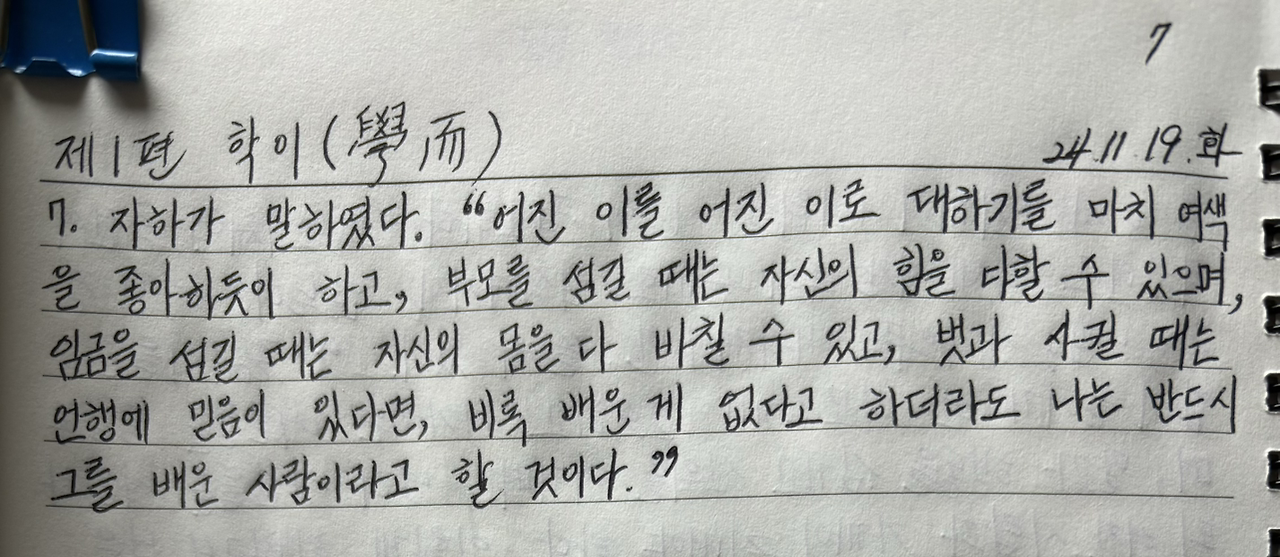 7
제1편 학이(學而) 24.11.19.화
7. 자하가 말하였다. “어진 이를 어진 이로 대하기를 마치 여색
을 좋아하듯이 하고, 부모를 섬길 때는 자신의 힘을 다할 수 있으며,
임금을 섬길 때는 자신의 몸을 다 바칠 수 있고, 벗과 사귈 때는
언행에 믿음이 있다면, 비록 배운 게 없다고 하더라도 나는 반드시
그를 배운 사람이라고 할 것이다.”